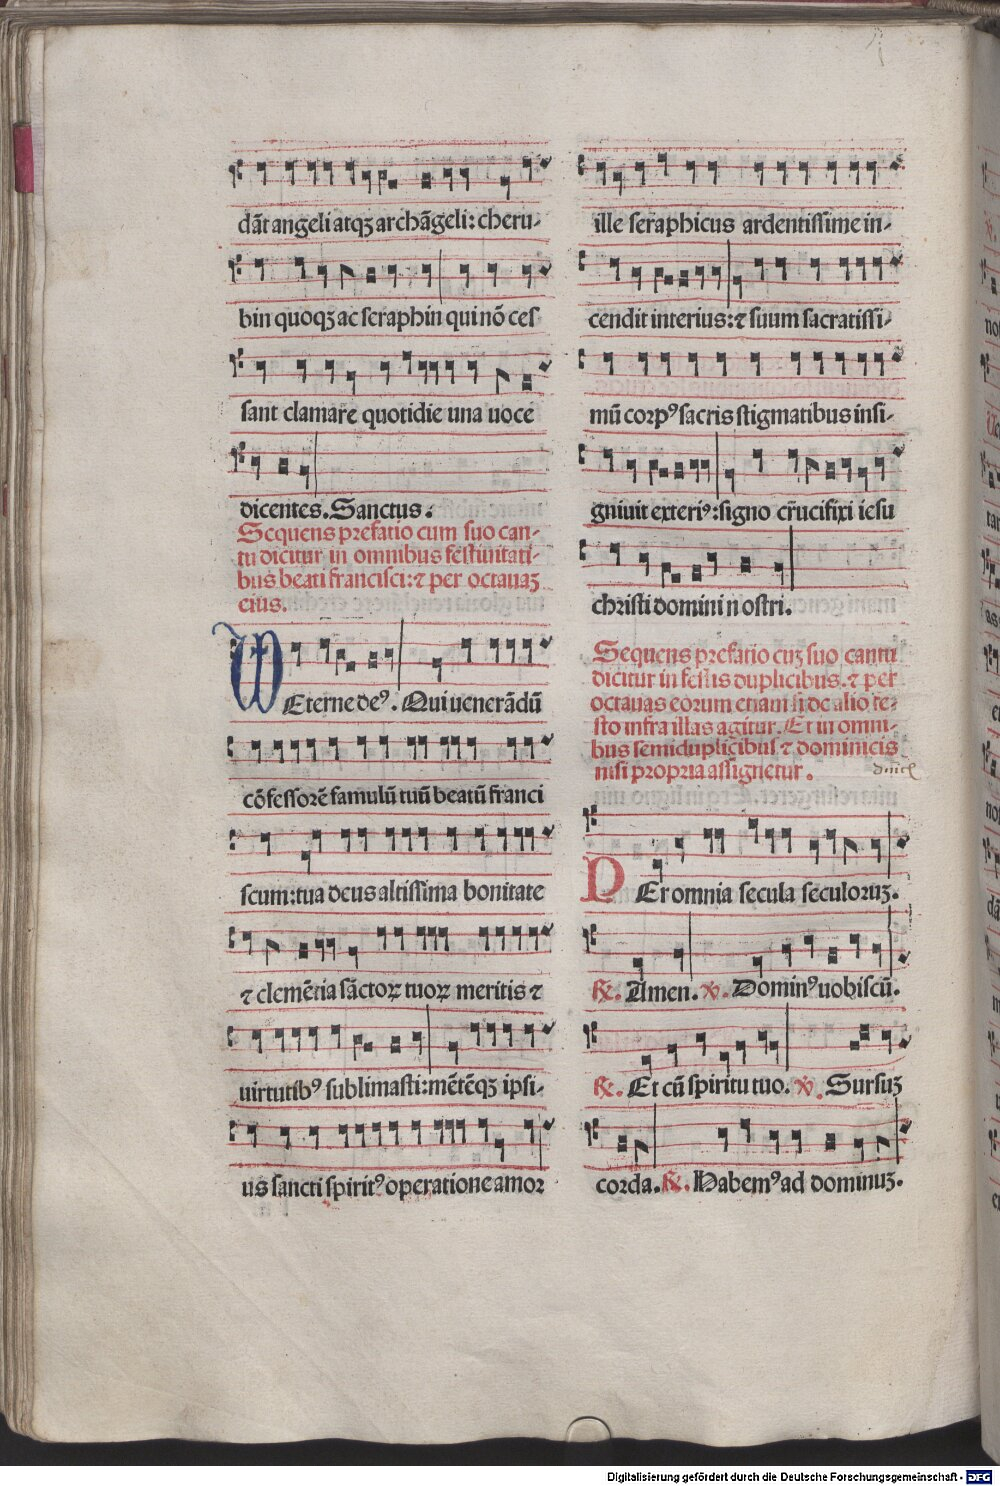 dāt angeli atqʒ archāgeli: cheru-
bin quoqʒ ac seraphin qui nō ces
sant clamare quotidie una uoce
dicentes. Sanctus.
Sequens prefatio cum suo can-
tu dicitur in omnibus festiuitati-
bus beati francisci: ⁊ per octauaʒ
eius.
Eterne deꝰ. Qui uenerādū
cōfessorē famulū tuū beatū franci
scum: tua deus altissima bonitate
⁊ clemētia sāctoꝝ tuoꝝ meritis ⁊
uirtutibꝰ sublimasti: mētēqʒ ipsi-
us sancti spiritꝰ operatione amor
ille seraphicus ardentissime in-
cendit interius: ⁊ suum sacratissi-
mū corpꝰ sacris stigmatibus insi-
gniuit exteriꝰ: signo cr̄ucifixi iesu
christi domini nostri.
Sequens prefatio cuʒ suo cantu
dicitur in festis duplicibus. ⁊ per
octauas eorum etiam si de alio fe-
sto infra illas agitur. Et in omni-
bus semiduplicibus ⁊ dominicis
nisi propria assignetur.
PEr omnia secula seculoruʒ.
℟. Amen. ℣. Dominꝰ uobiscū.
℟. Et cū spiritu tuo. ℣. Sursuʒ
corda. ℟. Habemꝰ ad dominuʒ.
Digitalisierung gefördert durch die Deutsche Forschungsgemeinschaft - DFG